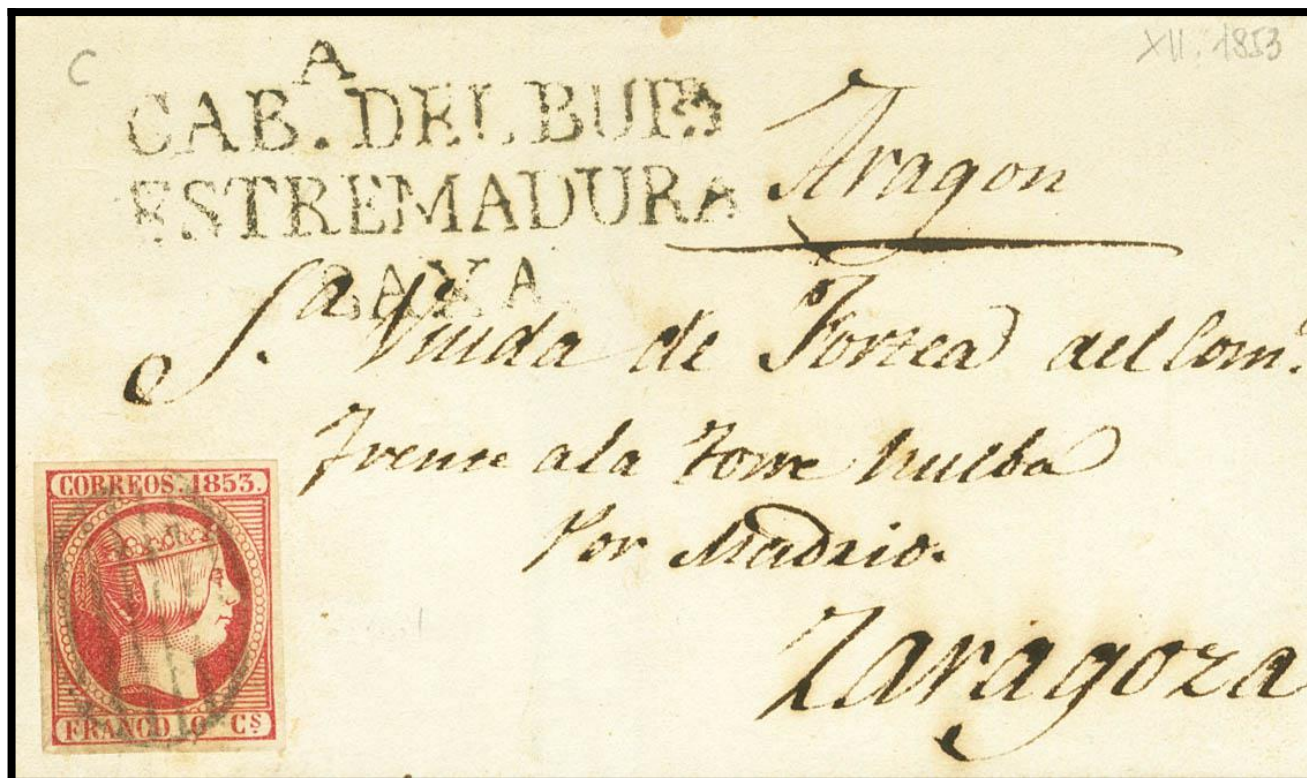 C
XII. 1853
A
CAB. DEL BUEY
ESTREMADURA
BAXA.
Aragon
S.ª Viuda de Fortea del Com.º
frente a la torre nueba
Por Madrid.
Zaragoza
CORREOS. 1853.
FRANCO 6 Cs